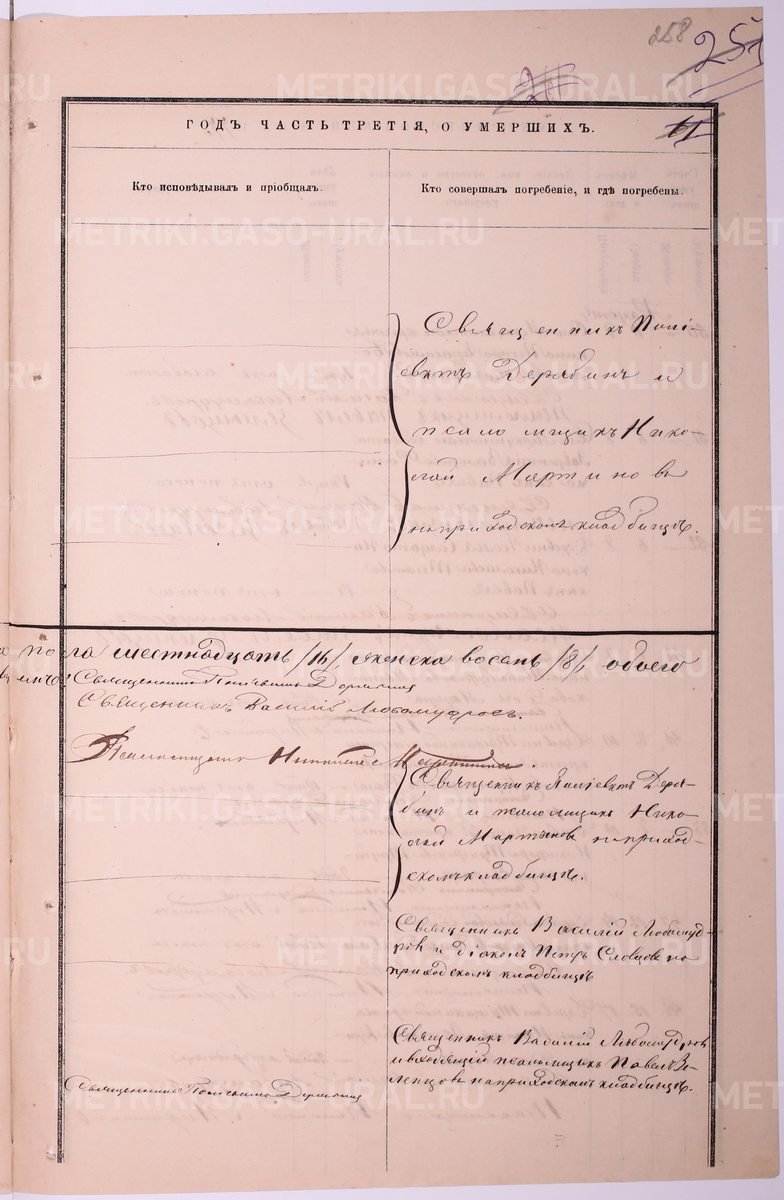 258
251
11
ГОДЪ ЧАСТЬ ТРЕТІЯ, О УМЕРШИХЪ.
Кто исповѣдывалъ и пріобщалъ.
Кто совершалъ погребеніе, и гдѣ погребены.
Священникъ Поліевктъ
Дерябинъ и
псаломщикъ Нико-
лай Мартиновъ
на приходскомъ кладбищѣ.
пола шестнадцать /16/, женска восемь /8/, обоего
Священникъ Поліевктъ Дерябинъ
Священникъ Василій Любомудровъ.
Псаломщикъ Николай Мартиновъ.
Священникъ Поліевктъ Деря-
бинъ и псаломщикъ Нико-
лай Мартиновъ на приход-
скомъ кладбищѣ.
Священникъ Василій Любомуд-
ровъ и діаконъ Петръ Словцовъ на
приходскомъ кладбищѣ
Священникъ Василій Любомудровъ
и псаломщикъ Павелъ
на приходскомъ кладбищѣ.
Священникъ Поліевктъ Дерябинъ
METRIKI.GASO-URAL.RU